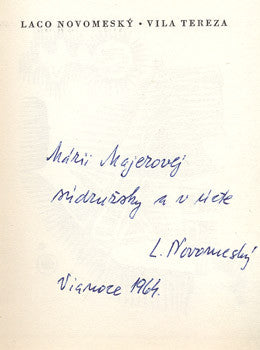 LACO NOVOMESKÝ • VILA TEREZA
Márii Majerovej
súdružsky a v úcte
L. Novomeský
Vianoce 1964.